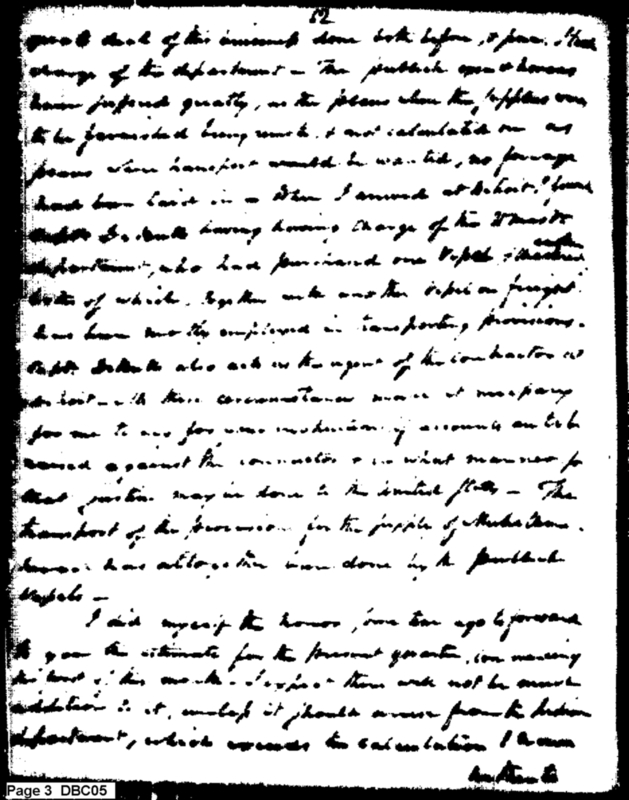 52
great deal of this business done both before, & since I had
charge of the department – The publick oxen & horses
have suffered greatly, as the places where the supplies were
to be furnished being weak, & not calculated on as
places where transport would be wanted, no forage
had been laid in – When I arrived at Detroit, I found
Capt. having charge of the
department, who had purchased one Vessel &
both of which, together with another Vessel on freight
has been mostly employed in transporting provisions –
Capt. also acts as the agent of the Contractor at
Detroit – all these circumstances makes it necessary
for me to ask for accounts are to be
raised against the contractor & in what manner so
that justice may be done to the United States – The
transport of the provisions for the supply of
has altogether been done by the publick
Vessels –
I did myself the honor some time ago to forward
to you the estimate for the present quarter, commencing
the first of this month – I expect there will not be much
addition to it, unless it should arise from the Indian
department, which exceeds the calculation I have
Page 3 DBC05